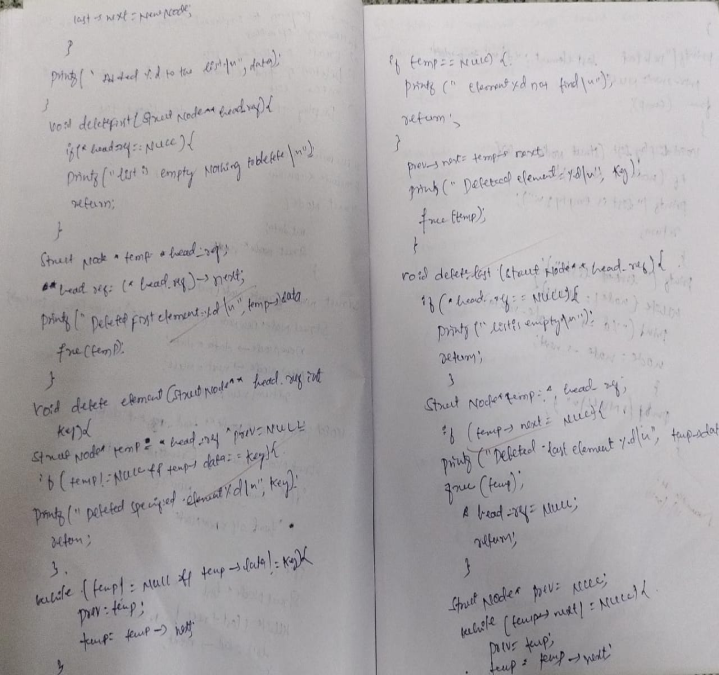 last → next = newNode;
}
printf(" Inserted %d to the list\n", data);
}
void deletefirst (struct Node** head_ref) {
if (*head_ref == NULL) {
printf("list is empty Nothing to delete \n");
return;
}
struct Node * temp = *head_ref;
*head_ref = (*head_ref) → next;
printf(" Deleted first element %d \n", temp→data
free(temp);
}
void delete element (struct Node** head_ref int
key) {
struct Node* temp = *head_ref *prev = NULL
if (temp != NULL && temp→ data == key) {
printf(" Deleted specified element %d \n", key);
return;
}
while (temp != NULL && temp → data != key) {
prev = temp;
temp = temp → next;
}
if temp == NULL) {
printf (" element %d not find \n");
return;
}
prev → next = temp → next;
printf (" Deleted element = %d\n", key);
free (temp);
}
void delete last (struct Node** head_ref) {
if (*head_ref == NULL) {
printf (" list is empty \n");
return;
}
struct Node* temp = * head_ref;
if (temp → next = NULL) {
printf ("Deleted last element %d\n", temp→dat
free (temp);
* head_ref = NULL;
return;
}
struct Node* prev = NULL;
while (temp→ next != NULL) {
prev = temp;
temp = temp → next;